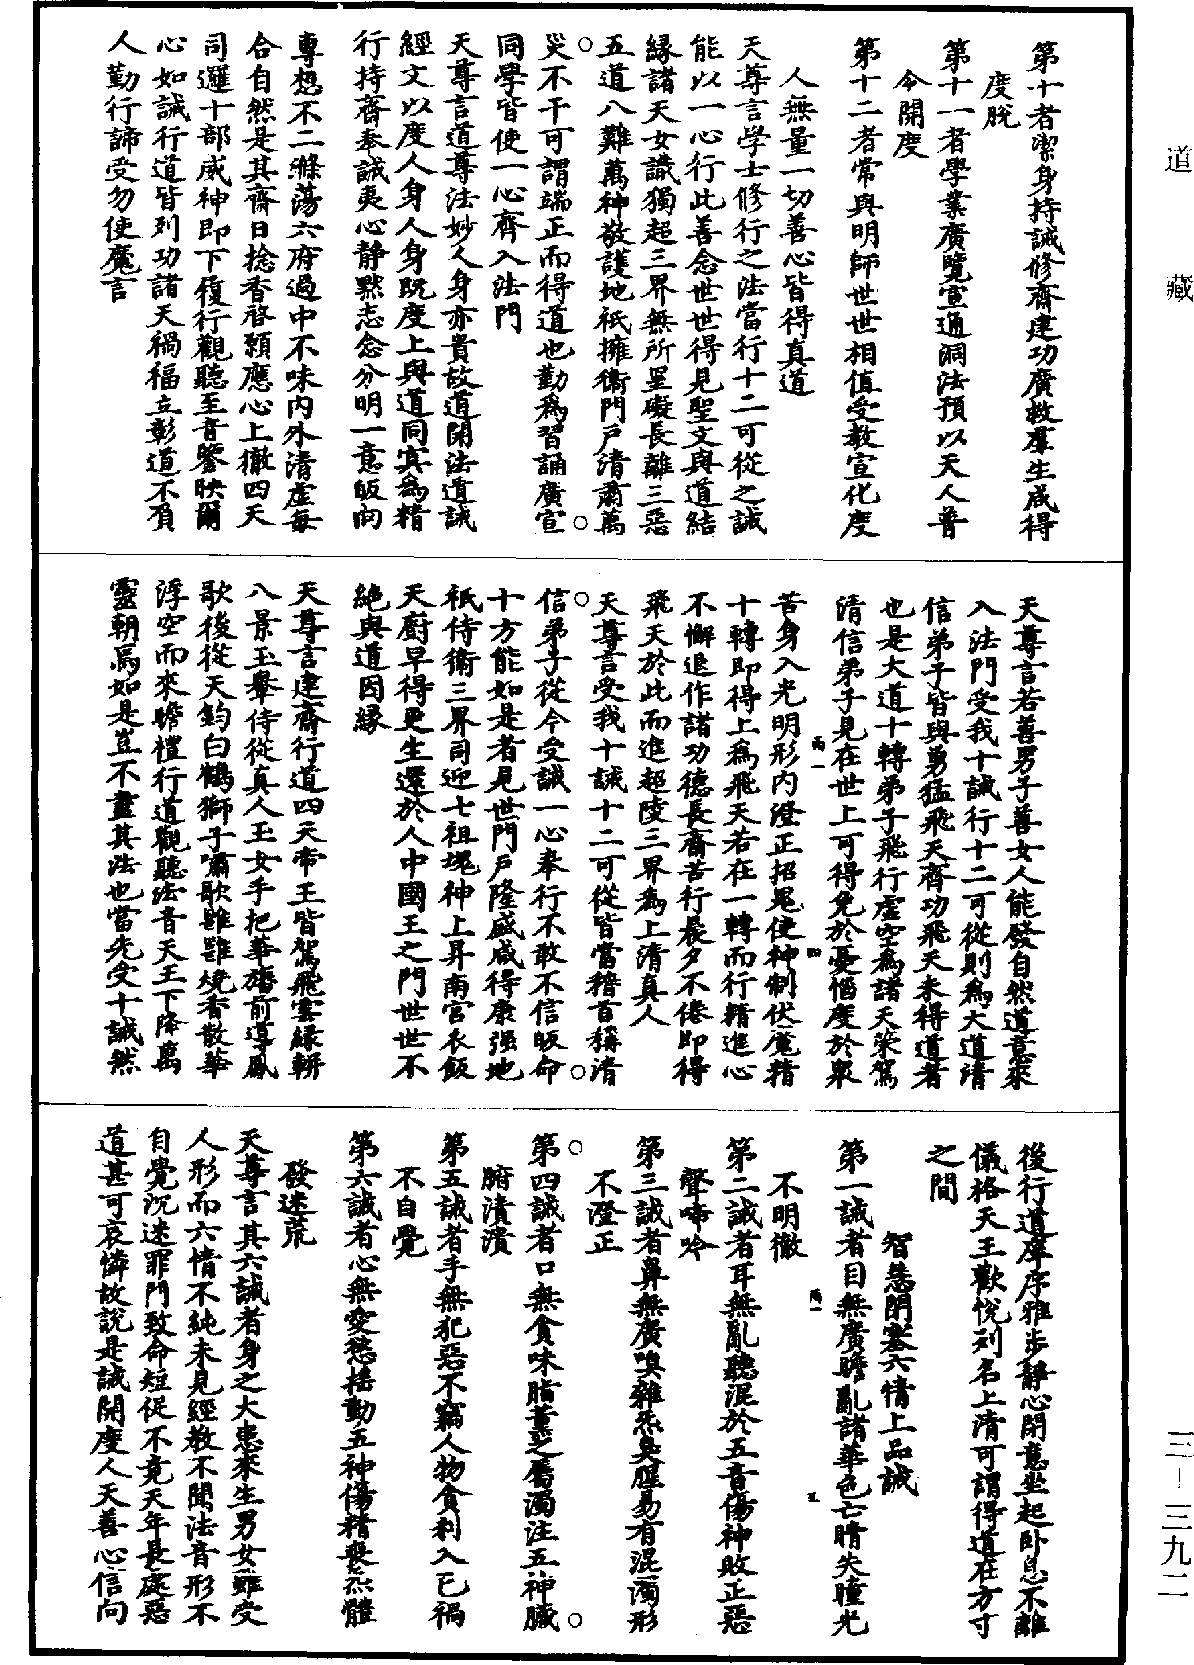 道藏
第十者潔身持誡修齋建功廣救羣生咸得
度脫
第十一者學業廣覽宣通洞法預以天人普
令開度
第十二者常與明師世世相值受教宣化度
人無量一切善心皆得真道
天尊言學士修行之法當行十二可從之誡
能以一心行此善念世世得見聖文與道結
緣諸天女識獨超三界無所罣礙長離三惡
五道八難萬神敬護地祇擁衛門戶清肅萬
災不干可謂端正而得道也勤為習誦廣宣
同學皆使一心齊入法門
天尊言道尊法妙人身亦貴故道開法道誡
經文以度人身人身既度上與道同寘為精
行持齋奉誠夷心靜默志念分明一意皈向
專想不二滌蕩六府過中不味內外清虛每
合自然是其齋日捻香啓願應心上徹四天
司邏十部威神即下履行觀聽至音鑒映爾
心如誡行道皆列功諸天禍福立彰道不負
人勤行諦受勿使魔言
天尊言若善男子善女人能發自然道意來
入法門受我十誡行十二可從則為大道清
信弟子皆與勇猛飛天齊功飛天未得道者
也是大道十轉弟子飛行虛空為諸天策駕
清信弟子見在世上可得免於憂惱度於衆
苦身入光明形內澄正招鬼使神制伏魔精
十轉即得上為飛天若在一轉而行精進心
不懈退作諸功德長齋苦行晨夕不倦即得
飛天於此而進超陵三界為上清真人
天尊言受我十誡十二可從皆當稽首稱清
信弟子從今受誡一心奉行不敢不信皈命
十方能如是者見世門戶隆盛咸得康強地
祇侍衛三界司迎七祖魂神上昇南宮衣飯
天廚早得更生還於人中國王之門世世不
絕與道因緣
天尊言建齋行道四天帝王皆駕飛雲緑軿
八景玉轝侍從真人玉女手把華旛前導鳳
歌後從天鈞白鶴獅子嘯歌雝雝燒香散華
浮空而來瞻禮行道觀聽法音天王下降萬
靈朝焉如是豈不盡其法也當先受十誡然
後行道庠序雅步靜心閉意坐起卧息不離
儀格天王歡悅列名上清可謂得道在方寸
之間
智慧閉塞六情上品誡
第一誡者目無廣瞻亂諸華色亡睛失瞳光
不明徹
第二誡者耳無亂聽混於五音傷神敗正惡
聲啼吟
第三誡者鼻無廣嗅雜炁臭腥易有混濁形
不澄正
第四誡者口無貪味脂薰之屬濁注五神臟
腑潰潰
第五誡者手無犯惡不竊人物貪利入已禍
不自覺
第六誡者心無愛慾搖動五神傷精喪炁體
發迷荒
天尊言其六誡者身之大患來生男女雖受
人形而六情不純未見經教不聞法音形不
自覺沉迷罪門致命短促不竟天年長處惡
道甚可哀憐故說是誡開度人天善心信向
三-三九二